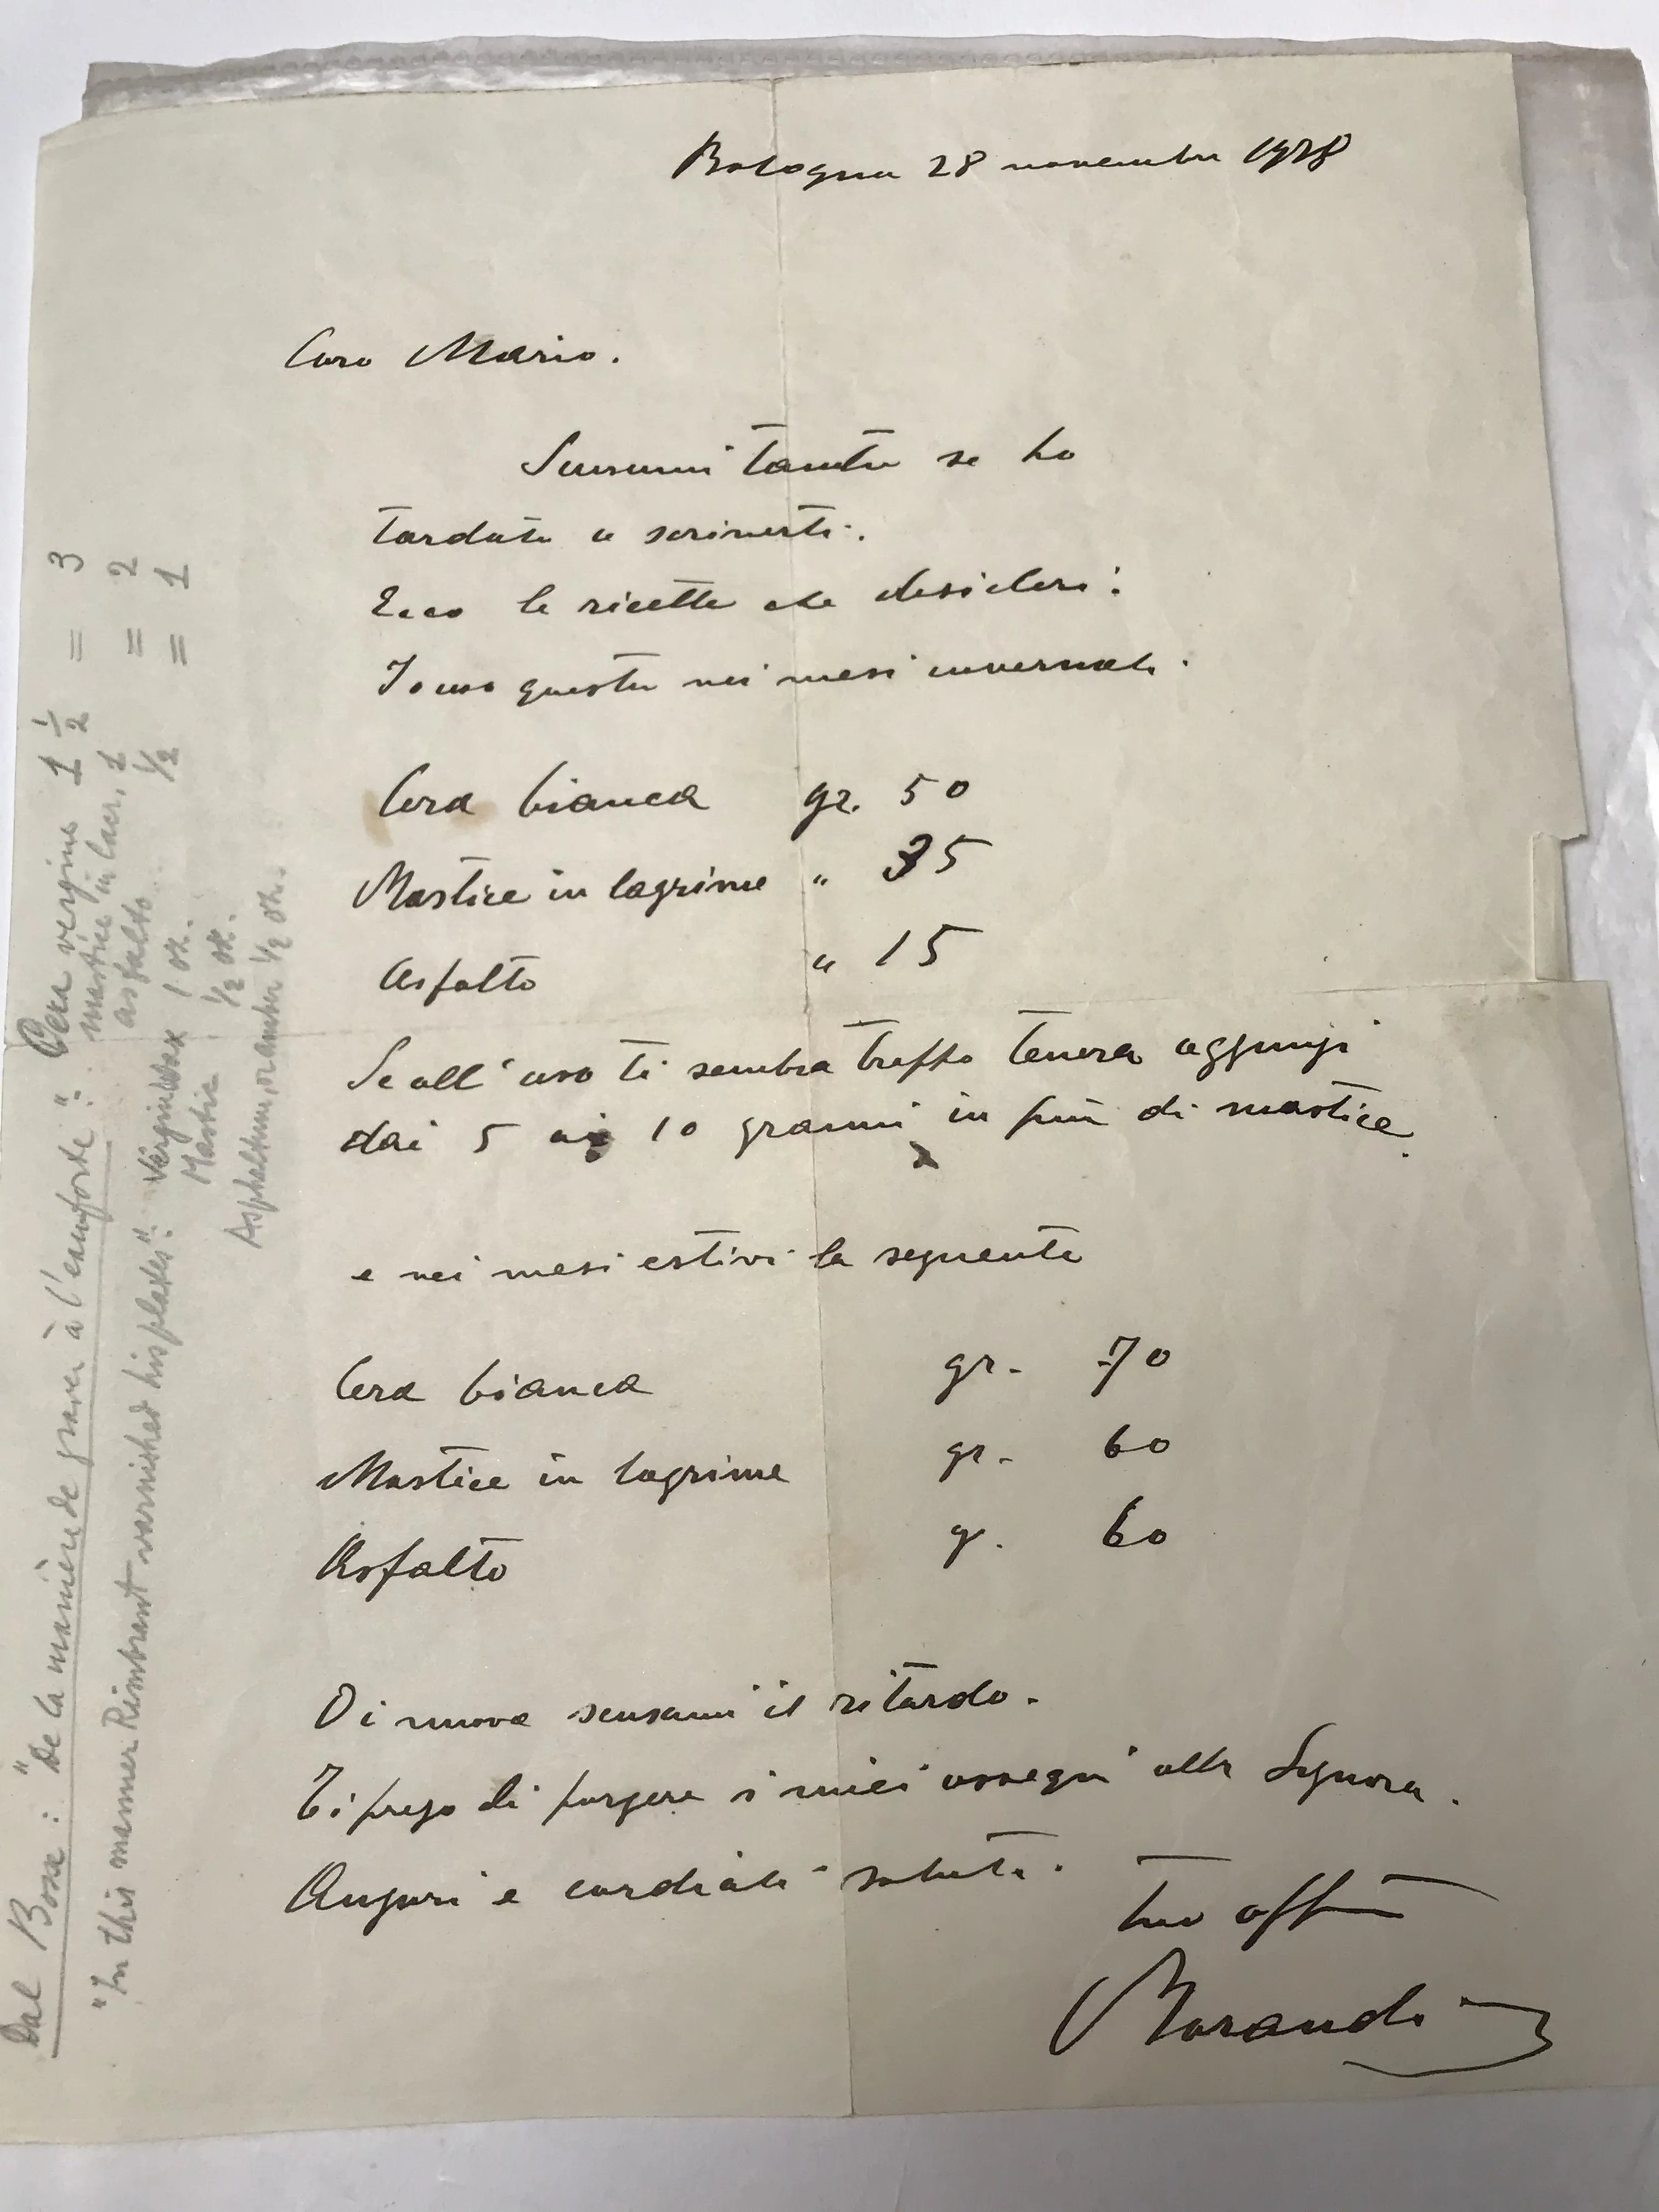 Bologna 28 novembre 1928
Caro Mario.
Scusami tanto se ho
tardato a scriverti.
Ecco le ricette che desideri:
Io uso questa nei mesi invernali.
Cera bianca gr. 50
Mastice in lagrime " 35
Asfalto " 15
Se all'uso ti sembra troppo tenera aggiungi
dai 5 ai 10 grammi in più di mastice.
e nei mesi estivi la seguente
Cera bianca gr. 70
Mastice in lagrime gr. 60
Asfalto gr. 60
Di nuovo scusami il ritardo.
Ti prego di porgere i miei ossequi alla Signora.
Auguri e cordiali saluti.
tuo aff
Morandi
Dal Bosse: "De la manière de graver à l'eauforte": Cera vergine 1 1/2 = 3
mastice in lacr. 1 = 2
asfalto 1/2 = 1
"In this manner Rimbrant varnished his plates": Virgin wax 1 oz.
Mastic 1/2 oz.
Asphaltum, or amber 1/2 oz.